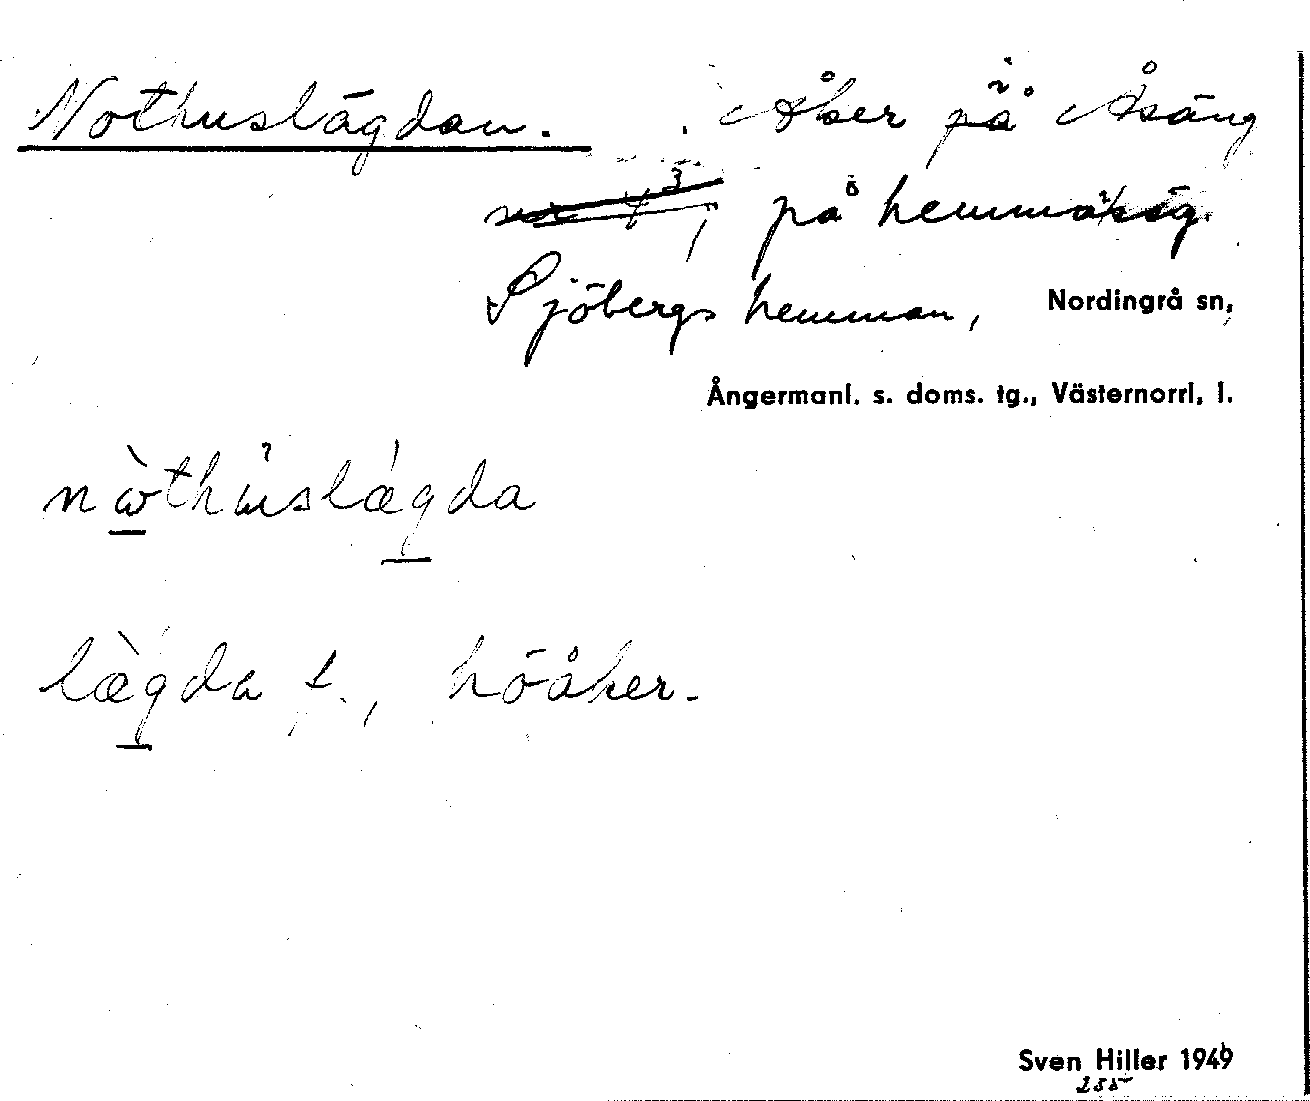 Nothuslägdan. Åker på Åsäng
nr 4 3, på
Sjöbergs hemman, Nordingrå sn,
Ångermanl. s. doms. tg., Västernorrl. l.
nὼthùslægda
lægda f., höåker.
Sven Hiller 1949
255